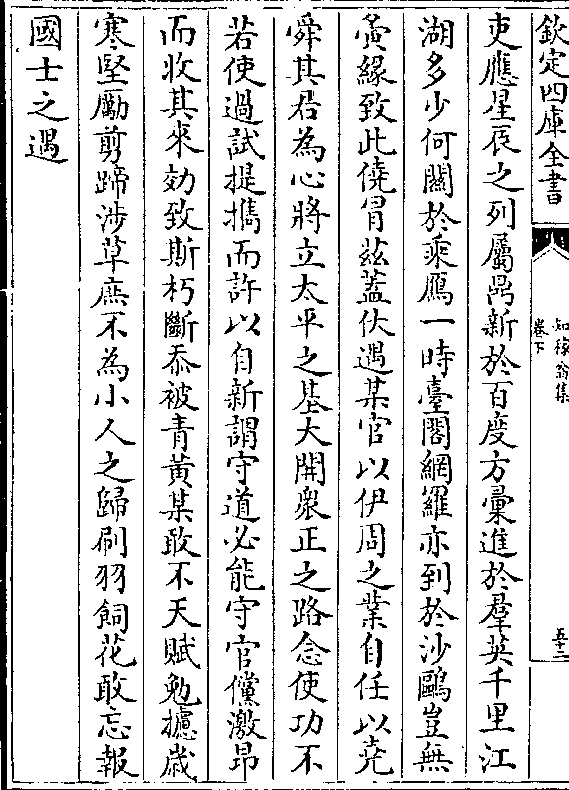 欽定四庫全書
知稼翁集
卷下
五十二
吏應星辰之列屬鼎新於百度方彙進於羣英千里江
湖多少何關於乘鴈一時臺閣網羅亦到於沙鷗豈無
夤緣致此僥冒茲蓋伏遇某官以伊周之業自任以堯
舜其君為心將立太平之基大開衆正之路念使功不
若使過試提攜而許以自新謂守道必能守官儻激昂
而收其來効致斯朽斷忝被青黃某敢不天賦勉攄歲
寒堅勵剪蹄涉草庶不為小人之歸刷羽飼花敢忘報
國士之遇